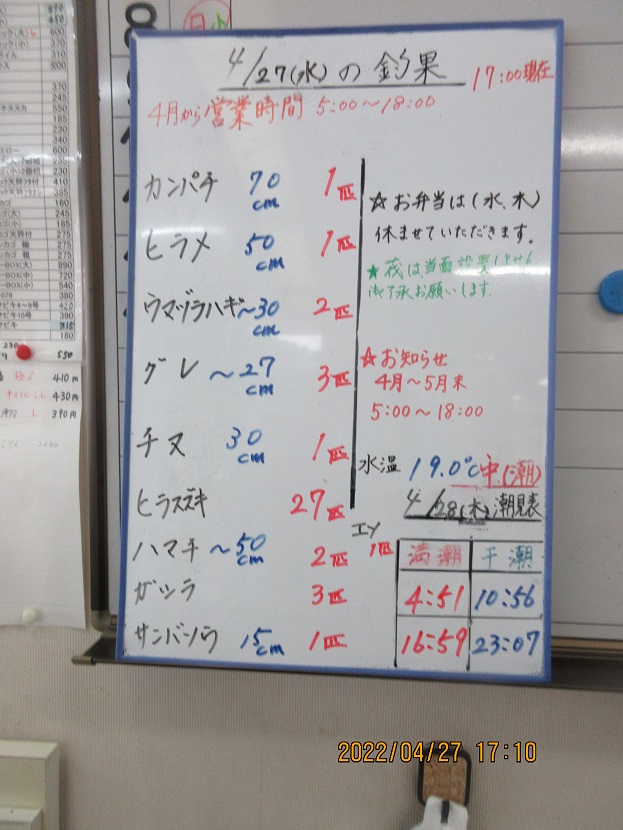 4/27(水)の釣果
17:00現在
4月から営業時間 5:00～18:00
カンパチ 70cm 1匹
ヒラメ 50cm 1匹
ウマヅラハギ ～30cm 2匹
グレ ～27cm 3匹
チヌ 30cm 1匹
ヒラスズキ 27匹
ハマチ ～50cm 2匹
ガシラ 3匹
サンバソウ 15cm 1匹
エイ 1匹
☆お弁当は(水、木)
休ませていただきます。
★筏は当面設置しません
御了承お願いします。
☆お知らせ
4月～5月末
5:00～18:00
水温 19.0℃ 中(潮)
4/28(木)潮見表
満潮 干潮
4:51 10:56
16:59 23:07
2022/04/27 17:10